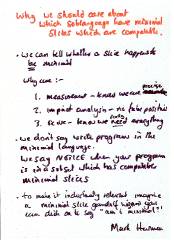 Why we should care about
which sublanguages have minimal
slices which are computable.
• we can tell whether a slice happens to
be minimal
Why care :-
1. measurement - know we are precise
2. impact analysis - no false positives
3. re-use - know we really need everything
• we don't say write programs in the
minimal language.
we say NOTICE when your program
is in a subset which has computable
minimal slices
• to make it industrially relevant imagine
a minimal slice gadget wizard you
can click on to say "am I minimal"!
Mark Harman